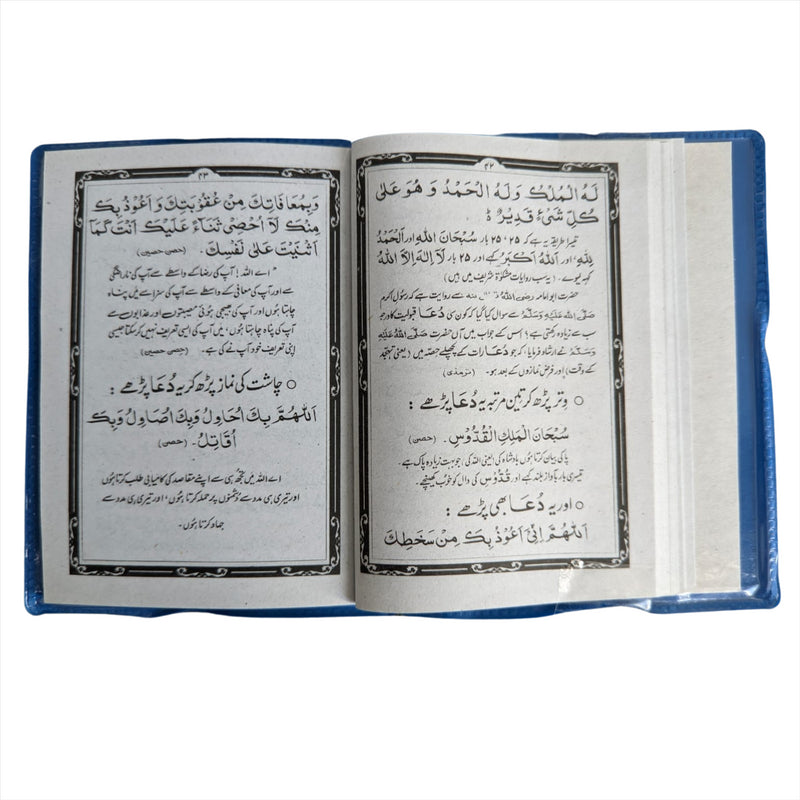 ۴۲
لَهُ الْمُلْكُ وَلَهُ الْحَمْدُ وَ هُوَ عَلٰى
كُلِّ شَىْءٍ قَدِيْرٌ ؕ
تیسرا طریقہ یہ ہے کہ ۲۵، ۲۵ بار سُبْحَانَ اللهِ اور اَلْحَمْدُ
لِلّٰهِ اور اَللهُ اَكْبَرُ کہے اور ۲۵ بار لَآ اِلٰهَ اِلَّا اللهُ
کہہ لیوے۔ (یہ سب روایات مشکوٰۃ شریف میں ہیں)
حضرت ابو امامہ رضی اللہ عنہ سے روایت ہے کہ رسول اکرم
صَلَّی اللهُ عَلَیْهِ وَسَلَّمَ سے سوال کیا گیا کہ کون سی دُعَا قبولیت کے درجہ
سب سے زیادہ رکھتی ہے؟ اس کے جواب میں آں حضرت صَلَّی اللهُ عَلَیْهِ
وَسَلَّمَ نے ارشاد فرمایا، کہ جو دُعَا رات کے پچھلے حصّہ میں (یعنی تہجد
کے وقت) اور فرض نمازوں کے بعد ہو۔ (ترمذی)
○ وِتر پڑھ کر تین مرتبہ یہ دُعَا پڑھے :
سُبْحَانَ الْمَلِكِ الْقُدُّوْسِ۔ (حصن)
پاکی بیان کرتا ہوں بادشاہ کی (یعنی اللہ کی) جو بہت زیادہ پاک ہے۔
تیسری بار بآواز بلند کہے اور قُدُّوْسِ کی دال کو خوب کھینچے۔
○ اور یہ دُعَا بھی پڑھے :
اَللّٰهُمَّ اِنِّىْٓ اَعُوْذُ بِكَ مِنْ سَخَطِكَ
۴۳
وَبِمُعَافَاتِكَ مِنْ عُقُوْبَتِكَ وَ اَعُوْذُ بِكَ
مِنْكَ لَآ اُحْصِىْ ثَنَآءً عَلَيْكَ اَنْتَ كَمَآ
اَثْنَيْتَ عَلٰى نَفْسِكَ۔ (حصن حصین)
اے اللہ! آپ کی رضا کے واسطے سے آپ کی ناراضگی
سے اور آپ کی معافی کے واسطے سے آپ کی سزا سے میں پناہ
چاہتا ہوں اور آپ کی بھیجی ہوئی مصیبتوں اور عذابوں سے
آپ کی پناہ چاہتا ہوں، میں آپ کی ایسی تعریف نہیں کر سکتا جیسی
اپنی تعریف خود آپ نے کی ہے۔ (حصن حصین)
○ چاشت کی نماز پڑھ کر یہ دُعَا پڑھے :
اَللّٰهُمَّ بِكَ اُحَاوِلُ وَبِكَ اُصَاوِلُ وَبِكَ
اُقَاتِلُ۔ (حصن)
اے اللہ میں تجھ ہی سے اپنے مقاصد کی کامیابی طلب کرتا ہوں
اور تیری ہی مدد سے دشمنوں پر حملہ کرتا ہوں، اور تیری ہی مدد سے
جہاد کرتا ہوں۔